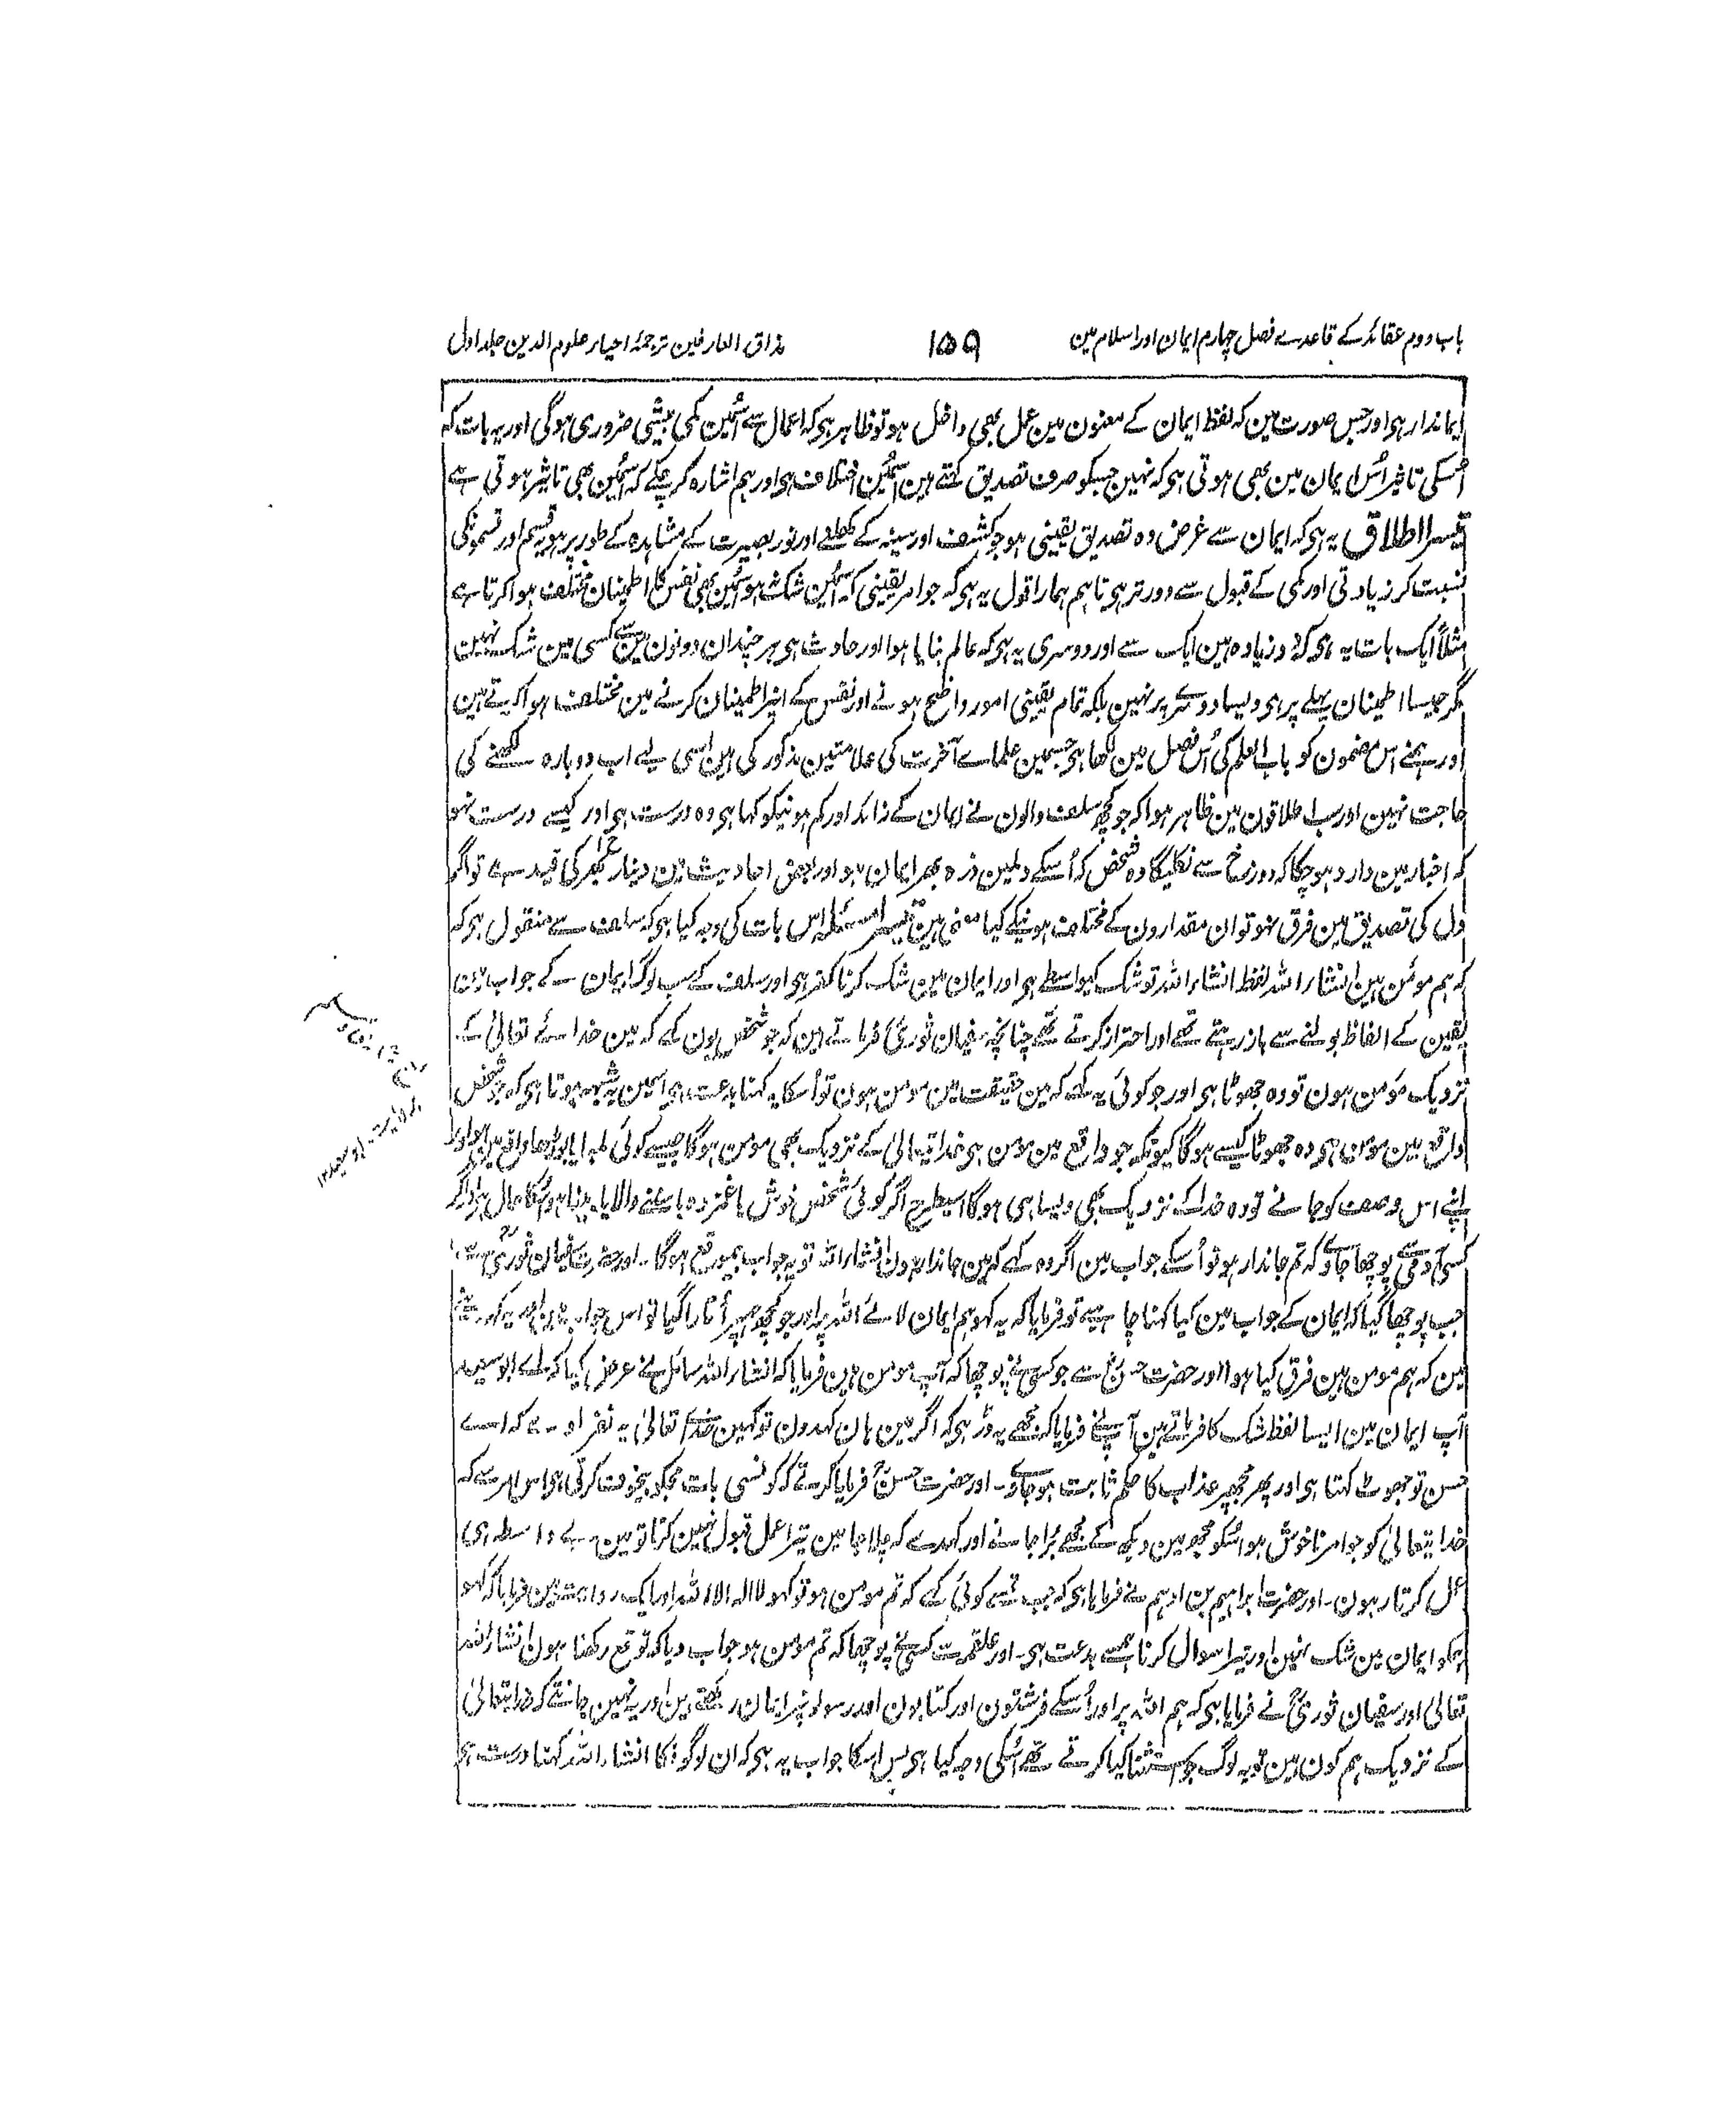 باب دوم عقائد کے قاعدے فصل چہارم ایمان اور اسلام مین ۱۵۹ مذاق العارفین ترجمۂ احیاء علوم الدین جلد اول
ایماندار ہی اور جس صورت مین کہ لفظ ایمان کے معنون مین عمل بھی داخل ہو تو ظاہر ہی کہ اعمال سے اُسمین کمی بیشی ضروری ہوگی اور یہ بات کہ
اُسکی تاثیر اُس ایمان مین بھی ہوتی ہی کہ نہین جسکو صرف تصدیق کہتے ہین اسمین اختلاف ہی اور ہم اشارہ کر چکے کہ اسمین بھی تاثیر ہوتی ہے
تیسرا اطلاق یہ ہی کہ ایمان سے غرض وہ تصدیق یقینی ہو جو کشف اور سینہ کے کھلنے اور نور بصیرت کے مشاہدہ کے طور پر ہو یہ قسم اور قسمونکی
نسبت کر زیادتی اور کمی کے قبول سے دور تر ہی تاہم ہمارا قول یہ ہی کہ جو امر یقینی کہ اسمین شک نہو اُسمین بھی نفس کا اطمینان مختلف ہوا کرتا ہے
مثلاً ایک بات یہ ہی کہ دو زیادہ ہین ایک سے اور دوسری یہ ہی کہ عالم بنایا ہوا اور حادث ہی ہر چند ان دونون مین سے کسی مین شک نہین
مگر جیسا اطمینان پہلے پر ہی ویسا دوسرے پر نہین بلکہ تمام یقینی امور واضح ہونے اور نفس کے انپر اطمینان کرنے مین مختلف ہوا کرتے ہین
اور ہمنے اس مضمون کو باب العلم کی اُس فصل مین لکھا ہی جسمین علماے آخرت کی علامتین مذکور کی ہین اسی لیے اب دوبارہ لکھنے کی
حاجت نہین اور سب اطلاقون مین ظاہر ہوا کہ جو کچھ سلف والون نے ایمان کے زائد اور کم ہونیکو کہا ہی وہ درست ہی اور کیسے درست نہو
کہ اخبار مین وارد ہوچکا کہ دوزخ سے نکلیگا وہ شخص کہ اُسکے دلمین ذرہ بھر ایمان ہو اور بعض احادیث مین دینار بھر کی قید ہے تو اگر
دل کی تصدیق مین فرق نہو تو ان مقدارون کے مختلف ہونیکے کیا معنی ہین تیسرا مسئلہ اس بات کی وجہ کیا ہی کہ سلف سے منقول ہی کہ
کہ ہم مومن ہین انشاء اللہ لفظ انشاء اللہ تو شک کیواسطے ہی اور ایمان مین شک کرنا کفر ہی اور سلف کے سب لوگ ایمان کے جواب مین
یقین کے الفاظ بولنے سے باز رہتے تھے اور احتراز کرتے تھے چنانچہ سفیان ثوری فرماتے ہین کہ جو شخص یون کہے کہ مین خدائے تعالیٰ کے
نزدیک مومن ہون تو وہ جھوٹا ہی اور جو کوئی یہ کہے کہ مین حقیقت مین مومن ہون تو اُسکا یہ کہنا بدعت ہی اسمین یہ شبہہ ہوتا ہی کہ جو شخص
واقع مین مومن ہی وہ جھوٹا کیسے ہوگا کیونکہ جو واقع مین مومن ہی خدا تعالیٰ کے نزدیک بھی مومن ہوگا جیسے کوئی لمبا یا بوڑھا واقع مین ہو اور
اپنے اس وصف کو جانے تو وہ خدا کے نزدیک بھی ویسا ہی ہوگا اسیطرح اگر کوئی شخص خوش یا غمزدہ یا سننے والا یا بینا ہو اُسکا حال ہی اور اگر
کسی آدمی سے پوچھا جاوے کہ تم جاندار ہو تو اُسکے جواب مین اگر وہ کہے کہ مین جاندار ہون انشاء اللہ تو یہ جواب بیموقع ہوگا۔ اور حضرت سفیان ثوری سے
جب پوچھا گیا کہ ایمان کے جواب مین کیا کہنا چاہیے تو فرمایا کہ یہ کہو ہم ایمان لائے اللہ پر اور جو کچھ ہمپر اُتارا گیا تو اس جواب مین اور یہ کہنے
مین کہ ہم مومن ہین فرق کیا ہوا اور حضرت حسن سے جو کسی نے پوچھا کہ آپ مومن ہین فرمایا کہ انشاء اللہ سائل نے عرض کیا کہ اے ابو سعید
آپ ایمان مین ایسا لفظ شک کا فرماتے ہین آپ نے فرمایا کہ مجھے یہ ڈر ہی کہ اگر مین ہان کہدون تو کہین خدائے تعالیٰ یہ نفرماوے کہ اے
حسن تو جھوٹ کہتا ہی اور پھر مجھپر عذاب کا حکم ثابت ہوجاوے۔ اور حضرت حسن فرمایا کرتے کہ کونسی بات مجکو بیخوف کرتی ہی اس امر سے کہ
خدایتعالیٰ کو جو امر ناخوش ہو اسکو مجھ مین دیکھ کے مجھے بُرا جانے اور کہدے کہ چلا جا مین تیرا عمل قبول نہین کرتا تو مین بے واسطہ ہی
عمل کرتا رہون۔ اور حضرت ابراہیم بن ادہم نے فرمایا ہی کہ جب تمسے کوئی کہے کہ تم مومن ہو تو کہو لا الہ الا اللہ اور ایک روایت مین فرمایا کہ کہو
ہمکو ایمان مین شک نہین اور تیرا سوال کرنا ہمسے بدعت ہی۔ اور علقمہ سے کسی نے پوچھا کہ تم مومن ہو جواب دیا کہ توقع رکھتا ہون انشاء اللہ
تعالیٰ اور سفیان ثوری نے فرمایا ہی کہ ہم اللہ پر اور اُسکے فرشتون اور کتابون اور رسولونپر ایمان رکھتے ہین اور یہ نہین جانتے کہ خدا تعالیٰ
کے نزدیک ہم کون ہین تو یہ لوگ جو استثنا کیا کرتے تھے اُسکی وجہ کیا ہی پس اسکا جواب یہ ہی کہ ان لوگونکا انشاء اللہ کہنا درست ہی